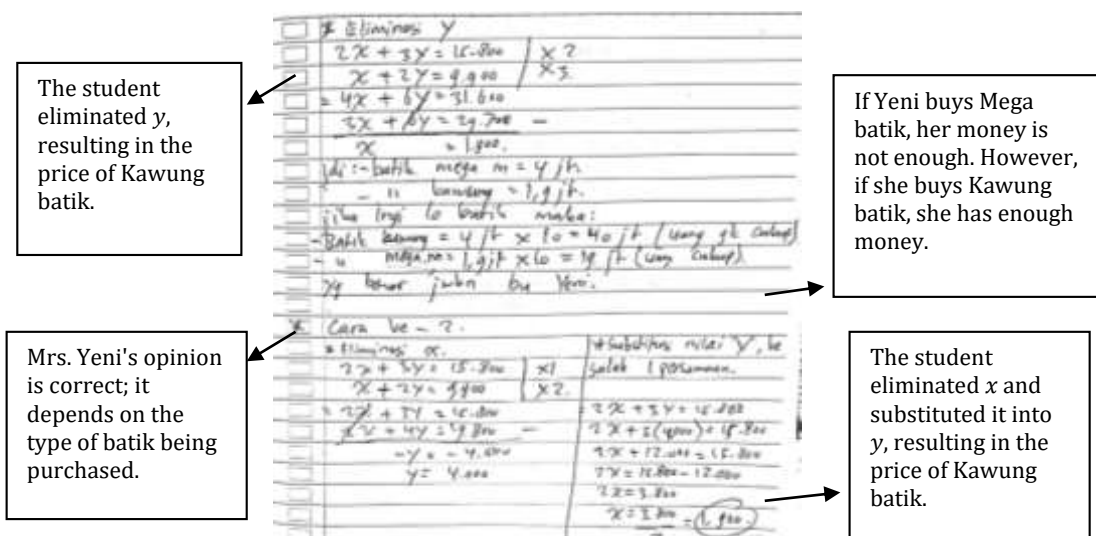 The student
eliminated y,
resulting in the
price of Kawung
batik.
Mrs. Yeni's opinion
is correct; it
depends on the
type of batik being
purchased.
* Eliminasi Y
2x + 3y = 15.800 | x 2
x + 2y = 9.900 | x 3
= 4x + 6y = 31.600
3x + 6y = 29.700 -
x = 1.900.
Jdi :- batik mega m = 4 jt.
- " kawung = 1,9 jt.
jika ingi 10 batik maka:
- Batik kawung = 4 jt x 10 = 40 jt (uang gk cukup)
- " mega m = 1,9 jt x 10 = 19 jt (uang cukup)
yg benar jwbn bu Yeni.
* Cara ke - 2.
* Eliminasi x.
2x + 3y = 15.800 | x1
x + 2y = 9900 | x2.
= 2x + 3y = 15.800
2x + 4y = 19.800 -
-y = - 4.000
y = 4.000
* substitusi nilai Y, ke
salah 1 persamaan.
= 2x + 3y = 15.800
2x + 3(4000) = 15.800
2x + 12.000 = 15.800
2x = 15.800 - 12.000
2x = 3.800
x = 3.800 = 1.900.
If Yeni buys Mega
batik, her money is
not enough. However,
if she buys Kawung
batik, she has enough
money.
The student
eliminated x and
substituted it into
y, resulting in the
price of Kawung
batik.